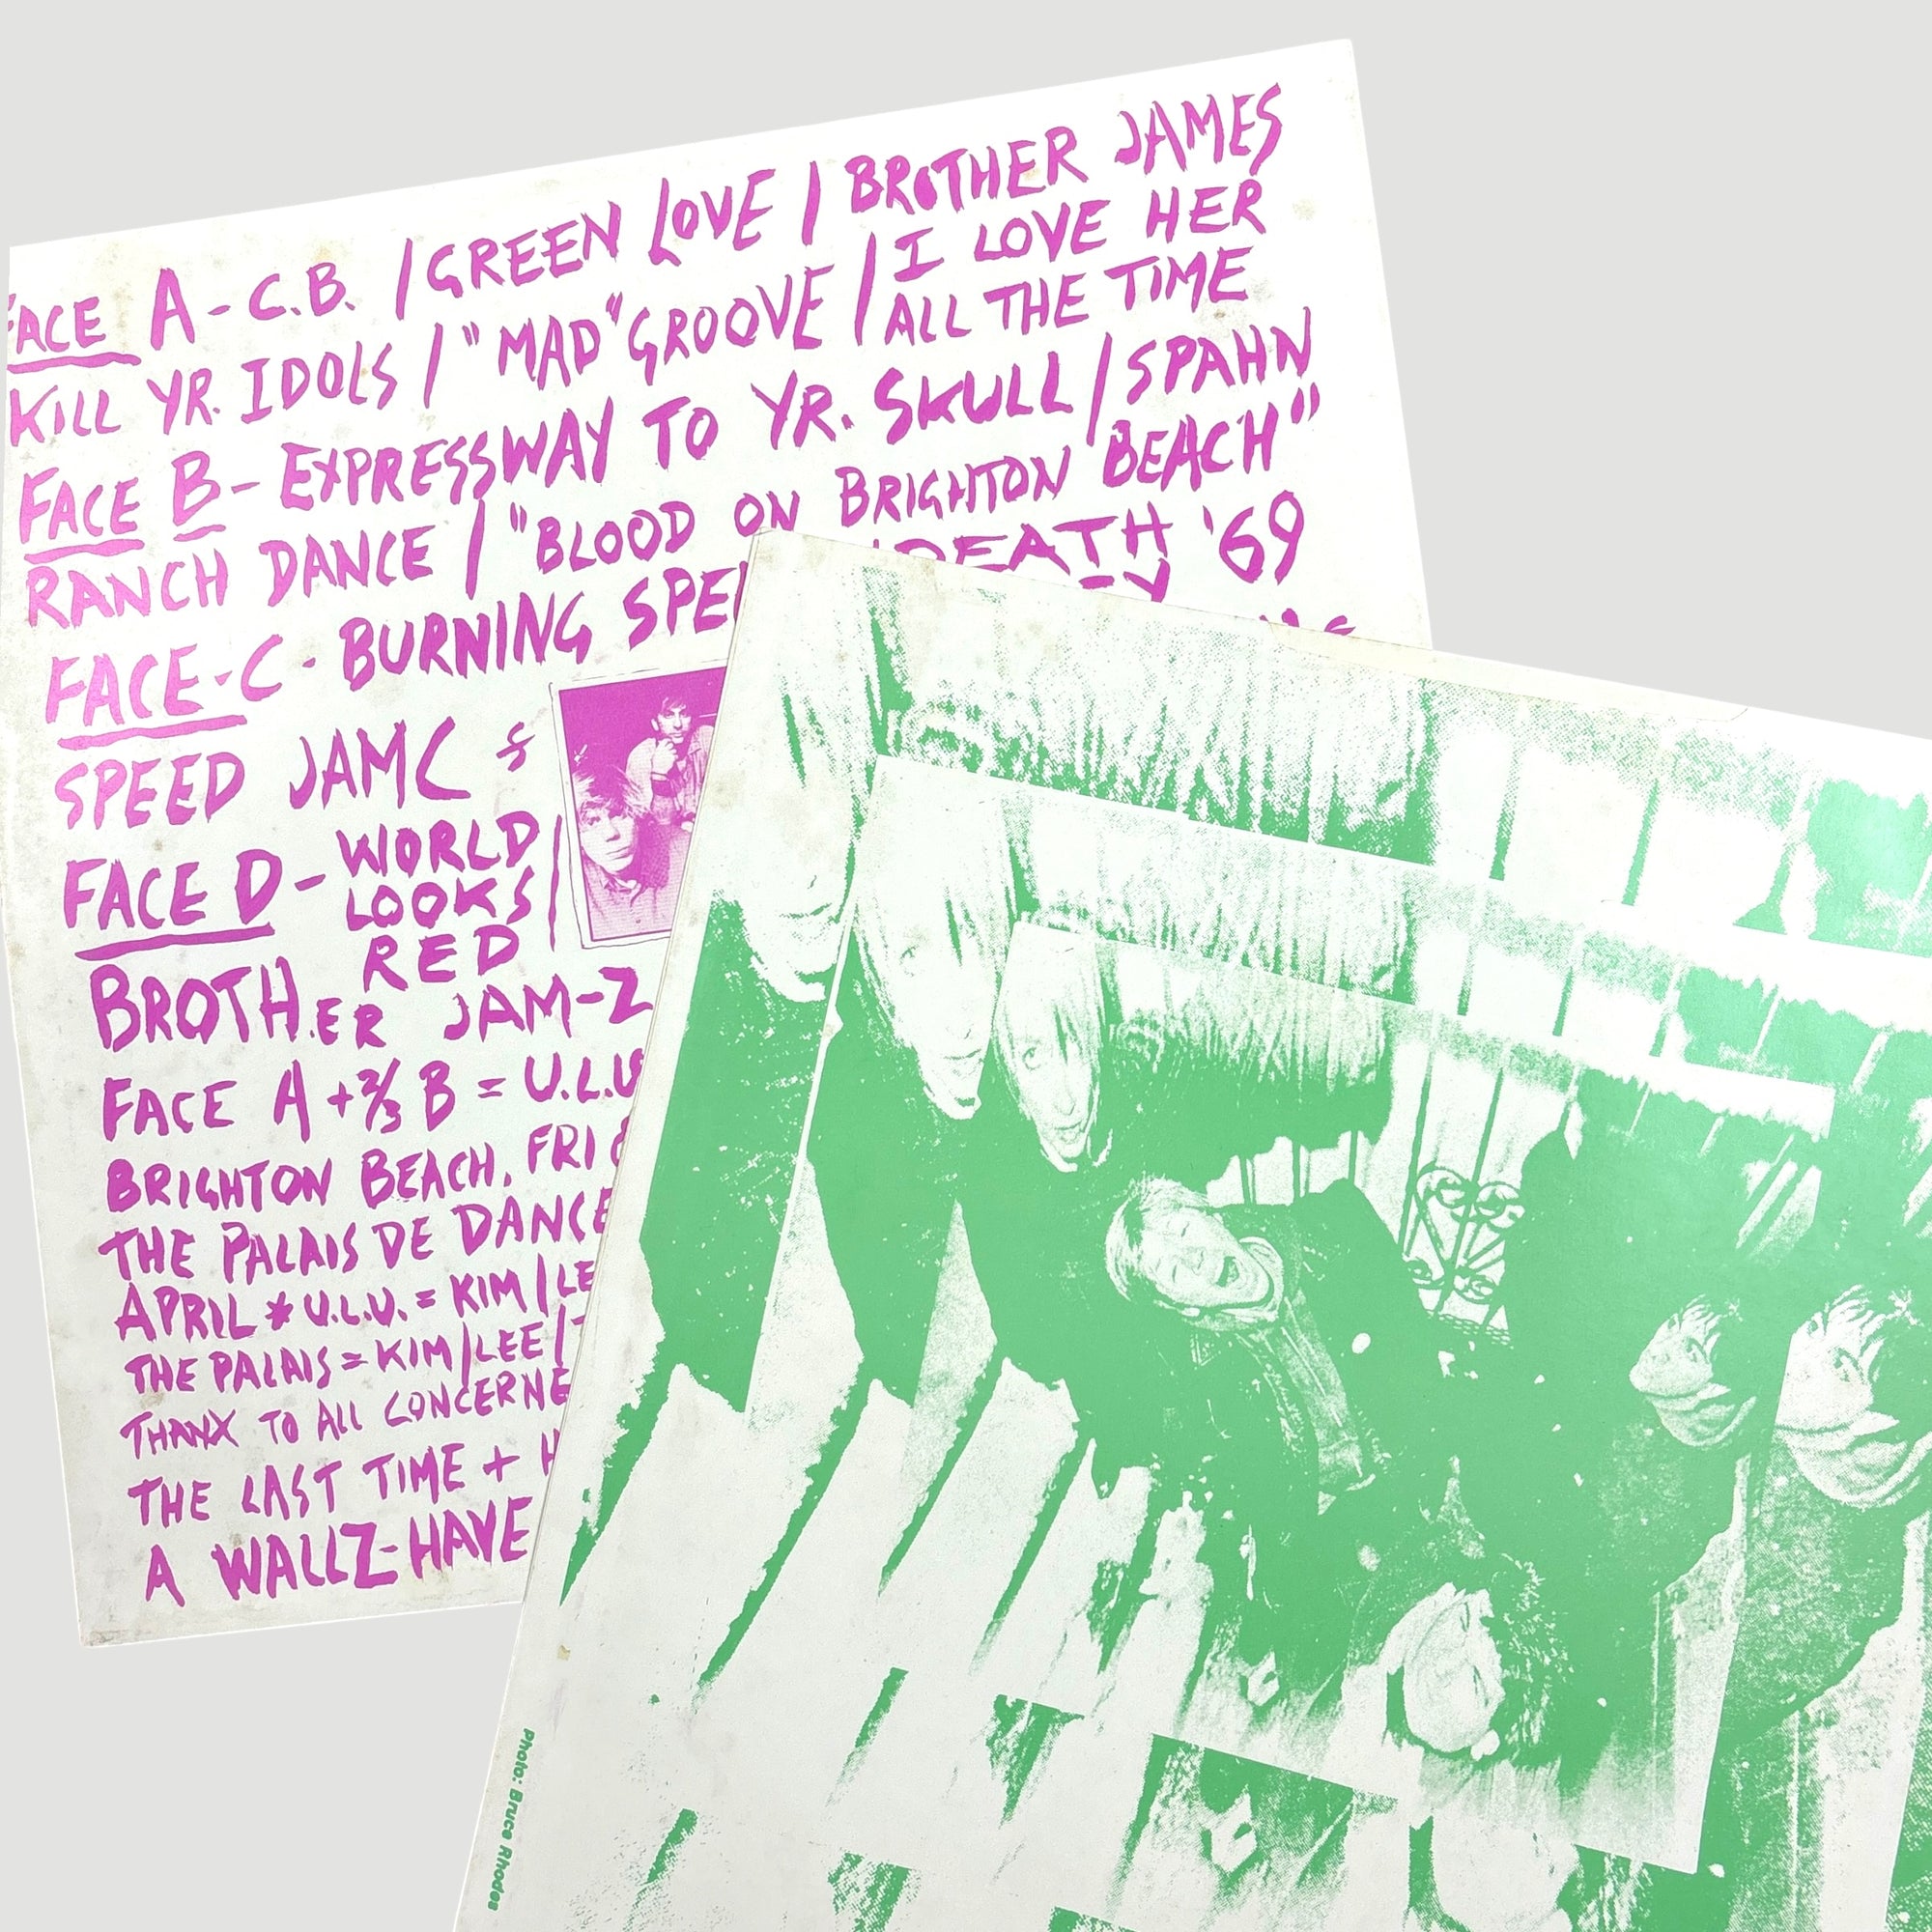 FACE A - C.B. / GREEN LOVE / BROTHER JAMES
KILL YR. IDOLS / "MAD" GROOVE / I LOVE HER
ALL THE TIME
FACE B - EXPRESSWAY TO YR. SKULL / SPAHN
RANCH DANCE / "BLOOD ON BRIGHTON BEACH"
FACE-C - BURNING DEATH '69
SPEED JAMC
FACE D - WORLD
LOOKS /
RED
BROTH.ER JAM-Z
FACE A + 2/3 B = U.L.U
BRIGHTON BEACH, FRI
THE PALAIS DE DANCE
APRIL * U.L.U. = KIM / LE
THE PALAIS = KIM / LEE /
THANX TO ALL CONCERNE
THE LAST TIME + H
A WALLZ-HAVE
Photo: Bruce Rhodes